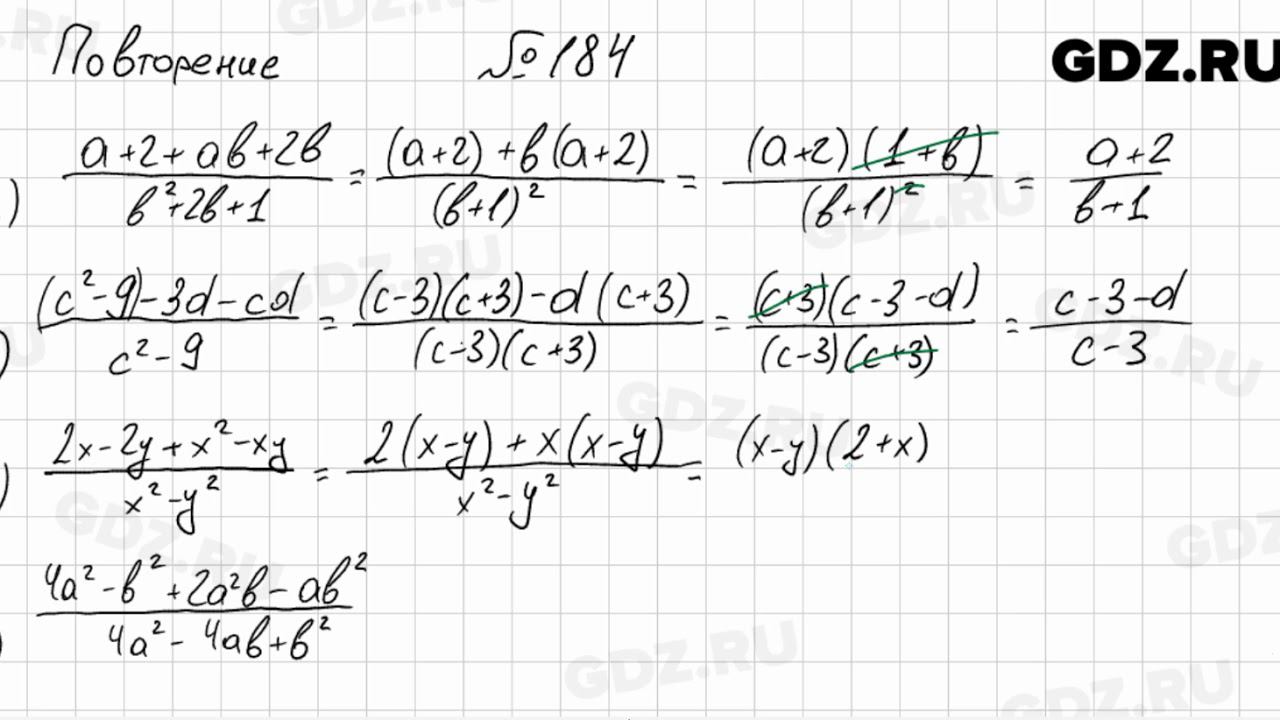 Повторение №184
GDZ.RU
) (a+2+ab+2b)/(b²+2b+1) = ((a+2)+b(a+2))/(b+1)² = ((a+2)(1+b))/(b+1)² = (a+2)/(b+1)
) ((c²-9)-3d-cd)/(c²-9) = ((c-3)(c+3)-d(c+3))/((c-3)(c+3)) = ((c+3)(c-3-d))/((c-3)(c+3)) = (c-3-d)/(c-3)
) (2x-2y+x²-xy)/(x²-y²) = (2(x-y)+x(x-y))/(x²-y²) = (x-y)(2+x)
) (4a²-b²+2a²b-ab²)/(4a²-4ab+b²)